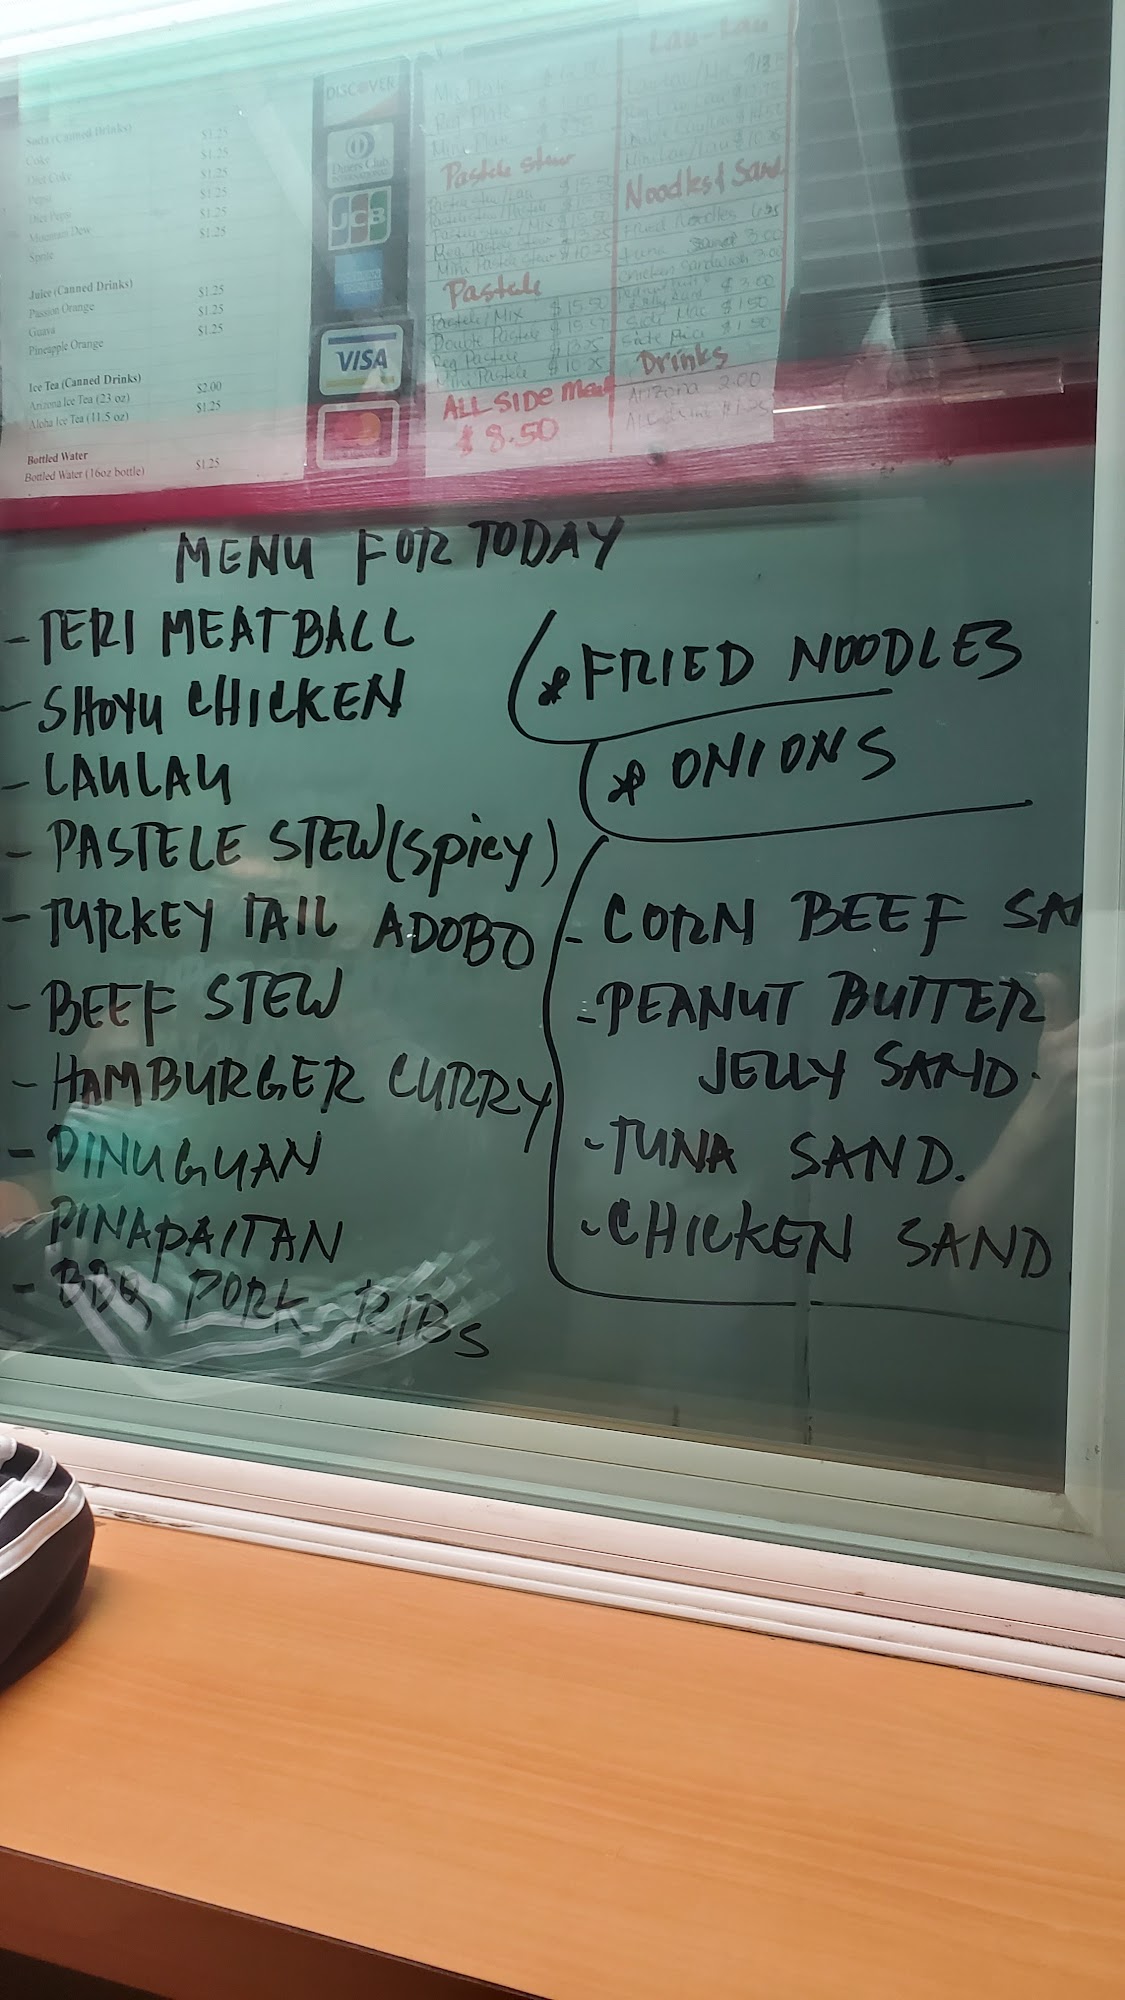 Soda (Canned Drinks)
Coke $1.25
Diet Coke $1.25
Pepsi $1.25
Diet Pepsi $1.25
Mountain Dew $1.25
Sprite $1.25
Juice (Canned Drinks)
Passion Orange $1.25
Guava $1.25
Pineapple Orange $1.25
Ice Tea (Canned Drinks)
Arizona Ice Tea (23 oz) $2.00
Aloha Ice Tea (11.5 oz) $1.25
Bottled Water
Bottled Water (16oz bottle) $1.25
DISCOVER
Diners Club
JCB
VISA
Mix Plate
Reg Plate
Mini Plate
Pastele Stew
Reg Pastele Stew $13.25
Mini Pastele Stew $10.25
Pastele
Pastele/Mix $15.50
Double Pastele $15.50
Reg Pastele $13.25
Mini Pastele $10.25
ALL SIDE Meat
$8.50
Lau-Lau
Noodles & Sand.
Fried Noodles
Tuna Sand 3.00
Chicken Sandwich 3.00
$3.00
Side Mac $1.50
Side Rice $1.50
Drinks
Arizona 2.00
MENU FOR TODAY
- TERI MEATBALL
- SHOYU CHICKEN
- LAULAU
- PASTELE STEW (Spicy)
- TURKEY TAIL ADOBO
- BEEF STEW
- HAMBURGER CURRY
- DINUGUAN
- PINAPAITAN
- BBQ PORK RIBS
* FRIED NOODLES
* ONIONS
- CORN BEEF SA
- PEANUT BUTTER
JELLY SAND.
- TUNA SAND.
- CHICKEN SAND.